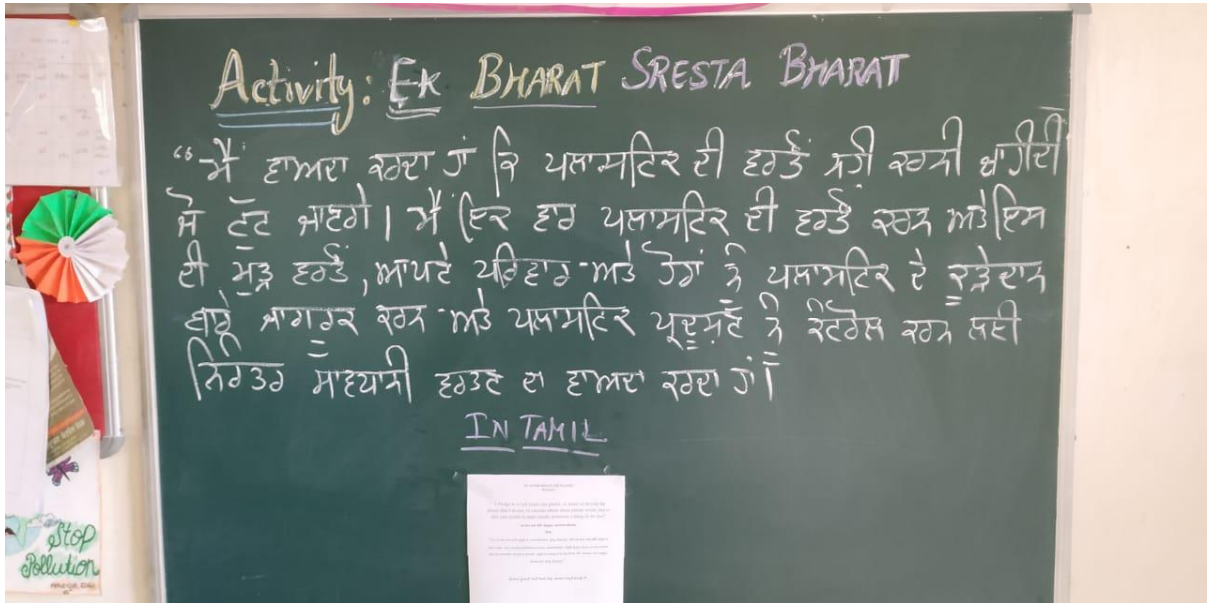 Activity: EK BHARAT SRESTA BHARAT
“ਮੈਂ ਵਾਅਦਾ ਕਰਦਾ ਹਾਂ ਕਿ ਪਲਾਸਟਿਕ ਦੀ ਵਰਤੋਂ ਨਹੀ ਕਰਨੀ ਚਾਹੀਦੀ
ਜੋ ਟੁੱਟ ਜਾਣਗੇ। ਮੈਂ ਇਕ ਵਾਰ ਪਲਾਸਟਿਕ ਦੀ ਵਰਤੋਂ ਕਰਨ ਅਤੇ ਇਸ
ਦੀ ਮੁੜ ਵਰਤੋਂ, ਆਪਣੇ ਪਰਿਵਾਰ ਅਤੇ ਹੋਰਾਂ ਨੂੰ ਪਲਾਸਟਿਕ ਦੇ ਕੂੜੇਦਾਨ
ਬਾਰੇ ਜਾਗਰੂਕ ਕਰਨ ਅਤੇ ਪਲਾਸਟਿਕ ਪ੍ਰਦੂਸ਼ਣ ਨੂੰ ਕੰਟਰੋਲ ਕਰਨ ਲਈ
ਨਿਰੰਤਰ ਸਾਵਧਾਨੀ ਵਰਤਣ ਦਾ ਵਾਅਦਾ ਕਰਦਾ ਹਾਂ।
IN TAMIL
Stop
Pollution